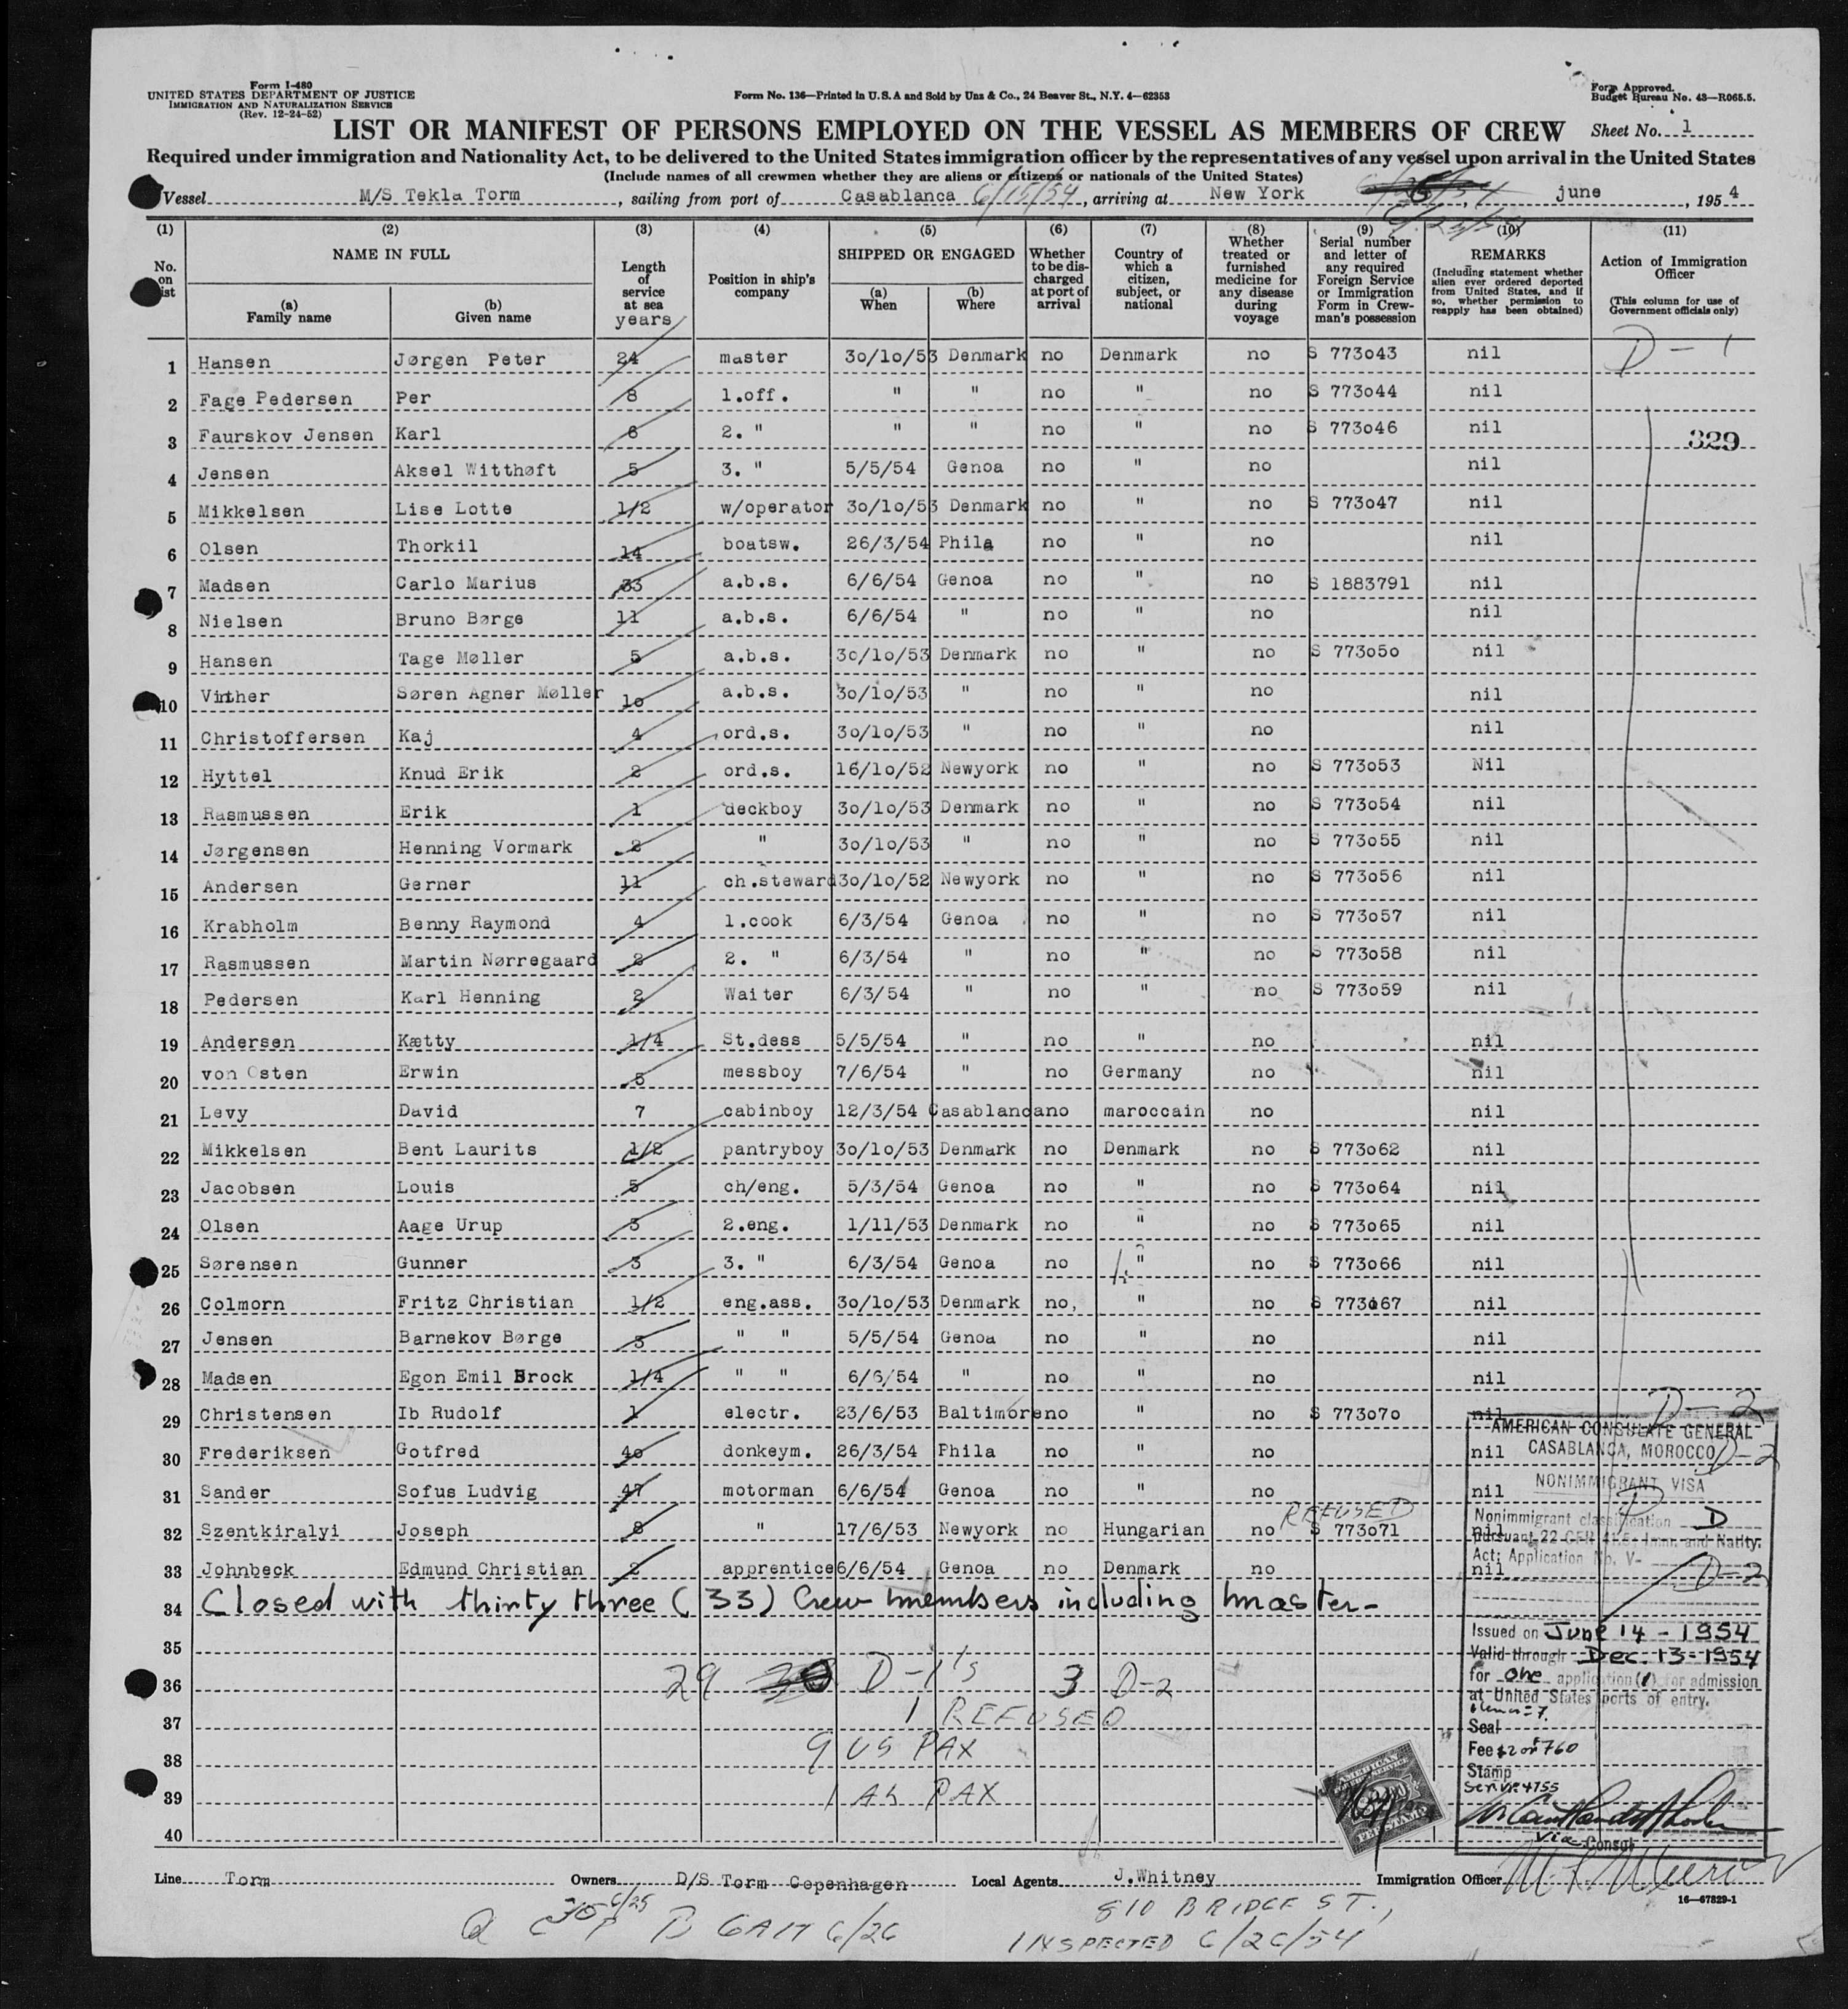 Form I-480
UNITED STATES DEPARTMENT OF JUSTICE
IMMIGRATION AND NATURALIZATION SERVICE
(Rev. 12-24-52)
Form No. 136—Printed in U.S.A and Sold by Unz & Co., 24 Beaver St., N.Y. 4—62353
Form Approved.
Budget Bureau No. 43—R065.5.
LIST OR MANIFEST OF PERSONS EMPLOYED ON THE VESSEL AS MEMBERS OF CREW Sheet No. 1
Required under immigration and Nationality Act, to be delivered to the United States immigration officer by the representatives of any vessel upon arrival in the United States
(Include names of all crewmen whether they are aliens or citizens or nationals of the United States)
Vessel M/S Tekla Torm, sailing from port of Casablanca 6/15/54, arriving at New York june, 1954
(1) (2) (3) (4) (5) (6) (7) (8) (9) (10) (11)
No. on list
NAME IN FULL
(a) Family name
(b) Given name
Length of service at sea years
Position in ship's company
SHIPPED OR ENGAGED
(a) When
(b) Where
Whether to be discharged at port of arrival
Country of which a citizen, subject, or national
Whether treated or furnished medicine for any disease during voyage
Serial number and letter of any required Foreign Service or Immigration Form in Crewman's possession
REMARKS
(Including statement whether alien ever ordered deported from United States, and if so, whether permission to reapply has been obtained)
Action of Immigration Officer
(This column for use of Government officials only)
1 Hansen Jørgen Peter 24 master 30/10/53 Denmark no Denmark no S 773043 nil D-1
2 Fage Pedersen Per 8 1.off. " " no " no S 773044 nil
3 Faurskov Jensen Karl 6 2. " " " no " no S 773046 nil 329
4 Jensen Aksel Witthøft 5 3. " 5/5/54 Genoa no " no nil
5 Mikkelsen Lise Lotte 1/2 w/operator 30/10/53 Denmark no " no S 773047 nil
6 Olsen Thorkil 14 boatsw. 26/3/54 Phila no " no nil
7 Madsen Carlo Marius 33 a.b.s. 6/6/54 Genoa no " no S 1883791 nil
8 Nielsen Bruno Børge 11 a.b.s. 6/6/54 " no " no nil
9 Hansen Tage Møller 5 a.b.s. 30/10/53 Denmark no " no S 773050 nil
10 Vinther Søren Agner Møller 10 a.b.s. 30/10/53 " no " no nil
11 Christoffersen Kaj 4 ord.s. 30/10/53 " no " no nil
12 Hyttel Knud Erik 2 ord.s. 16/10/52 Newyork no " no S 773053 Nil
13 Rasmussen Erik 1 deckboy 30/10/53 Denmark no " no S 773054 nil
14 Jørgensen Henning Vormark 2 " 30/10/53 " no " no S 773055 nil
15 Andersen Gerner 11 ch.steward 30/10/52 Newyork no " no S 773056 nil
16 Krabholm Benny Raymond 4 1.cook 6/3/54 Genoa no " no S 773057 nil
17 Rasmussen Martin Nørregaard 2 2. " 6/3/54 " no " no S 773058 nil
18 Pedersen Karl Henning 2 Waiter 6/3/54 " no " no S 773059 nil
19 Andersen Kætty 1/4 St.dess 5/5/54 " no " no nil
20 von Osten Erwin 5 messboy 7/6/54 " no Germany no nil
21 Levy David 7 cabinboy 12/3/54 Casablanca no maroccain no nil
22 Mikkelsen Bent Laurits 1/2 pantryboy 30/10/53 Denmark no Denmark no S 773062 nil
23 Jacobsen Louis 5 ch/eng. 5/3/54 Genoa no " no S 773064 nil
24 Olsen Aage Urup 3 2.eng. 1/11/53 Denmark no " no S 773065 nil
25 Sørensen Gunner 3 3. " 6/3/54 Genoa no " no S 773066 nil
26 Colmorn Fritz Christian 1/2 eng.ass. 30/10/53 Denmark no, " no S 773067 nil
27 Jensen Barnekov Børge 3 " " 5/5/54 Genoa no " no nil
28 Madsen Egon Emil Brock 1/4 " " 6/6/54 " no " no nil
29 Christensen Ib Rudolf 1 electr. 23/6/53 Baltimore no " no S 773070 nil D-2
30 Frederiksen Gotfred 40 donkeym. 26/3/54 Phila no " no nil D-2
31 Sander Sofus Ludvig 47 motorman 6/6/54 Genoa no " no nil
32 Szentkiralyi Joseph 8 " 17/6/53 Newyork no Hungarian no REFUSED S 773071 nil
33 Johnbeck Edmund Christian 2 apprentice 6/6/54 Genoa no Denmark no nil D-2
34 Closed with thirty three (33) Crew members including master-
35
36 29 D-1's 3 D-2
37 1 REFUSED
38 9 US PAX
39 1 AL PAX
40
AMERICAN CONSULATE GENERAL
CASABLANCA, MOROCCO
NONIMMIGRANT VISA
Nonimmigrant classification D
pursuant 22 CFR 41.5; Imm. and Natlty.
Act; Application No. V-
Issued on June 14 - 1954
Valid through Dec. 13 - 1954
for one application(s) for admission
at United States ports of entry.
Seal
Fee $2 or 760
Stamp
Serv# 4755
Vice Consul
Line Torm Owners D/S Torm Copenhagen Local Agents J.Whitney Immigration Officer
16—67829-1
6/25
6AM 6/26
810 BRIDGE ST.,
INSPECTED 6/26/54